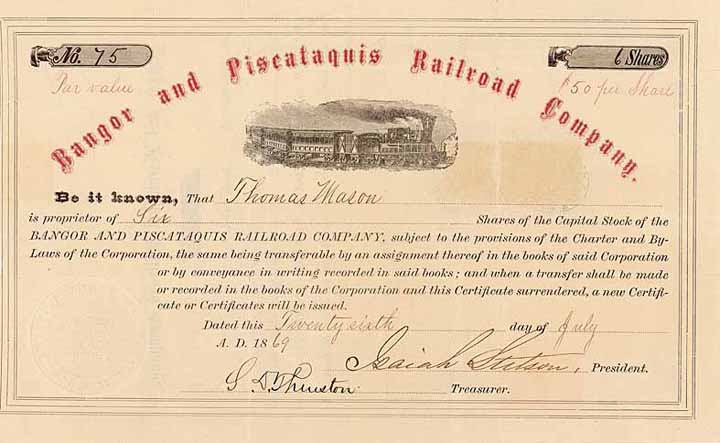 No. 75
6 Shares
Par value
$50 per Share
Bangor and Piscataquis Railroad Company.
Be it known, That Thomas Mason
is proprietor of Six Shares of the Capital Stock of the
BANGOR AND PISCATAQUIS RAILROAD COMPANY, subject to the provisions of the Charter and By-
Laws of the Corporation, the same being transferable by an assignment thereof in the books of said Corporation
or by conveyance in writing recorded in said books; and when a transfer shall be made
or recorded in the books of the Corporation and this Certificate surrendered, a new Certifi-
cate or Certificates will be issued.
Dated this Twenty sixth day of July
A. D. 1869
Isaiah Stetson, President.
Treasurer.